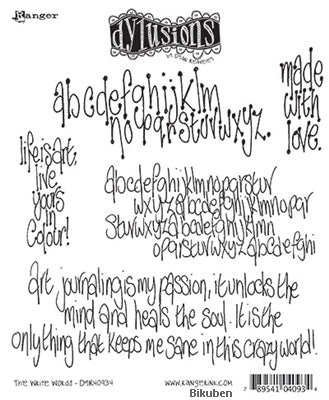 Ranger
dylusions
BY DYAN REAVELEY
abcdefghijklm
nopqrstuvwxyz.
made
with
love.
life is art,
live
yours
in
colour!
abcdefghijklmnopqrstuv
wxyzabcdefghijklmnopqr
stuvwxyzabcdefghijklmn
opqrstuvwxyzabcdefghi
art journaling is my passion, it unlocks the
mind and heals the soul. It is the
only thing that keeps me sane in this crazy world!
The Write Words - DYR40934
www.rangerink.com
7 89541 04093 4
Bikuben